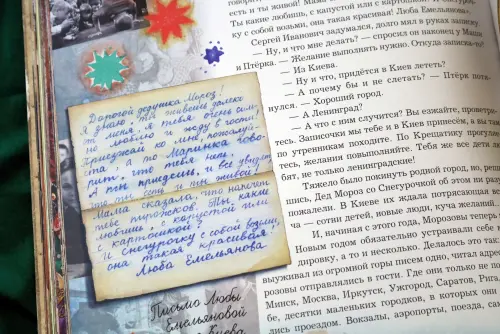 Дорогой дедушка Мороз!
Я знаю, ты живёшь далеко
от меня. Я тебя очень силь-
но люблю и жду в гости!
Приезжай ко мне, пожалуй-
ста, а то Маринка гово-
рит, что тебя нет.
А ты приедешь, и все увидят,
что ты есть и ты живой!
Мама сказала, что напечёт
тебе пирожков. Ты какие
любишь, с капустой или
с картошкой?
И Снегурочку с собой возьми,
она такая красивая!
Люба Емельянова
Письмо Любы
Емельяновой
Киева
есть и ты живой! Мама
Ты какие любишь, с капустой или с картошкой?
ку с собой возьми, она такая красивая! Люба Емельянова».
Сергей Иванович задумался, долго мял в руках записку.
— Ну, и что мне делать? — спросил он наконец у Маши
и Птёрка. — Желание выполнять нужно. Откуда записка-то?
— Из Киева.
— Ну и что, придётся в Киев лететь?
— А почему бы и не слетать? — Птёрв потя-
нулся. — Хороший город.
— А Ленинград?
— А что с ним случится? Вы езжайте, проветри-
тесь. Записочки мы тебе и в Киев принесём, а вы там
по утренникам походите. По Крещатику прогуляе-
тесь, желания повыполняйте. Тебя же все дети лю-
бят, не только ленинградские!
Тяжело было покинуть родной город, но, реши-
лись, Дед Мороз со Снегурочкой об этом ни разу
пожалели. В Киеве их ждала потрясающая
ча — сотни детей, новые люди, куча желаний.
И, начиная с этого года, Морозовы теперь
Новым годом обязательно устраивали себе
дировку, а то и несколько. Делалось это так:
выуживал из огромной горы писем одно, читал адрес
розовы отправлялись в гости. Где они только не по
Минск, Москва, Иркутск, Ужгород, Саратов, Рига
бе, десятки маленьких городков, в которых они
лись проездом. Вокзалы, аэропорты, поезда, са